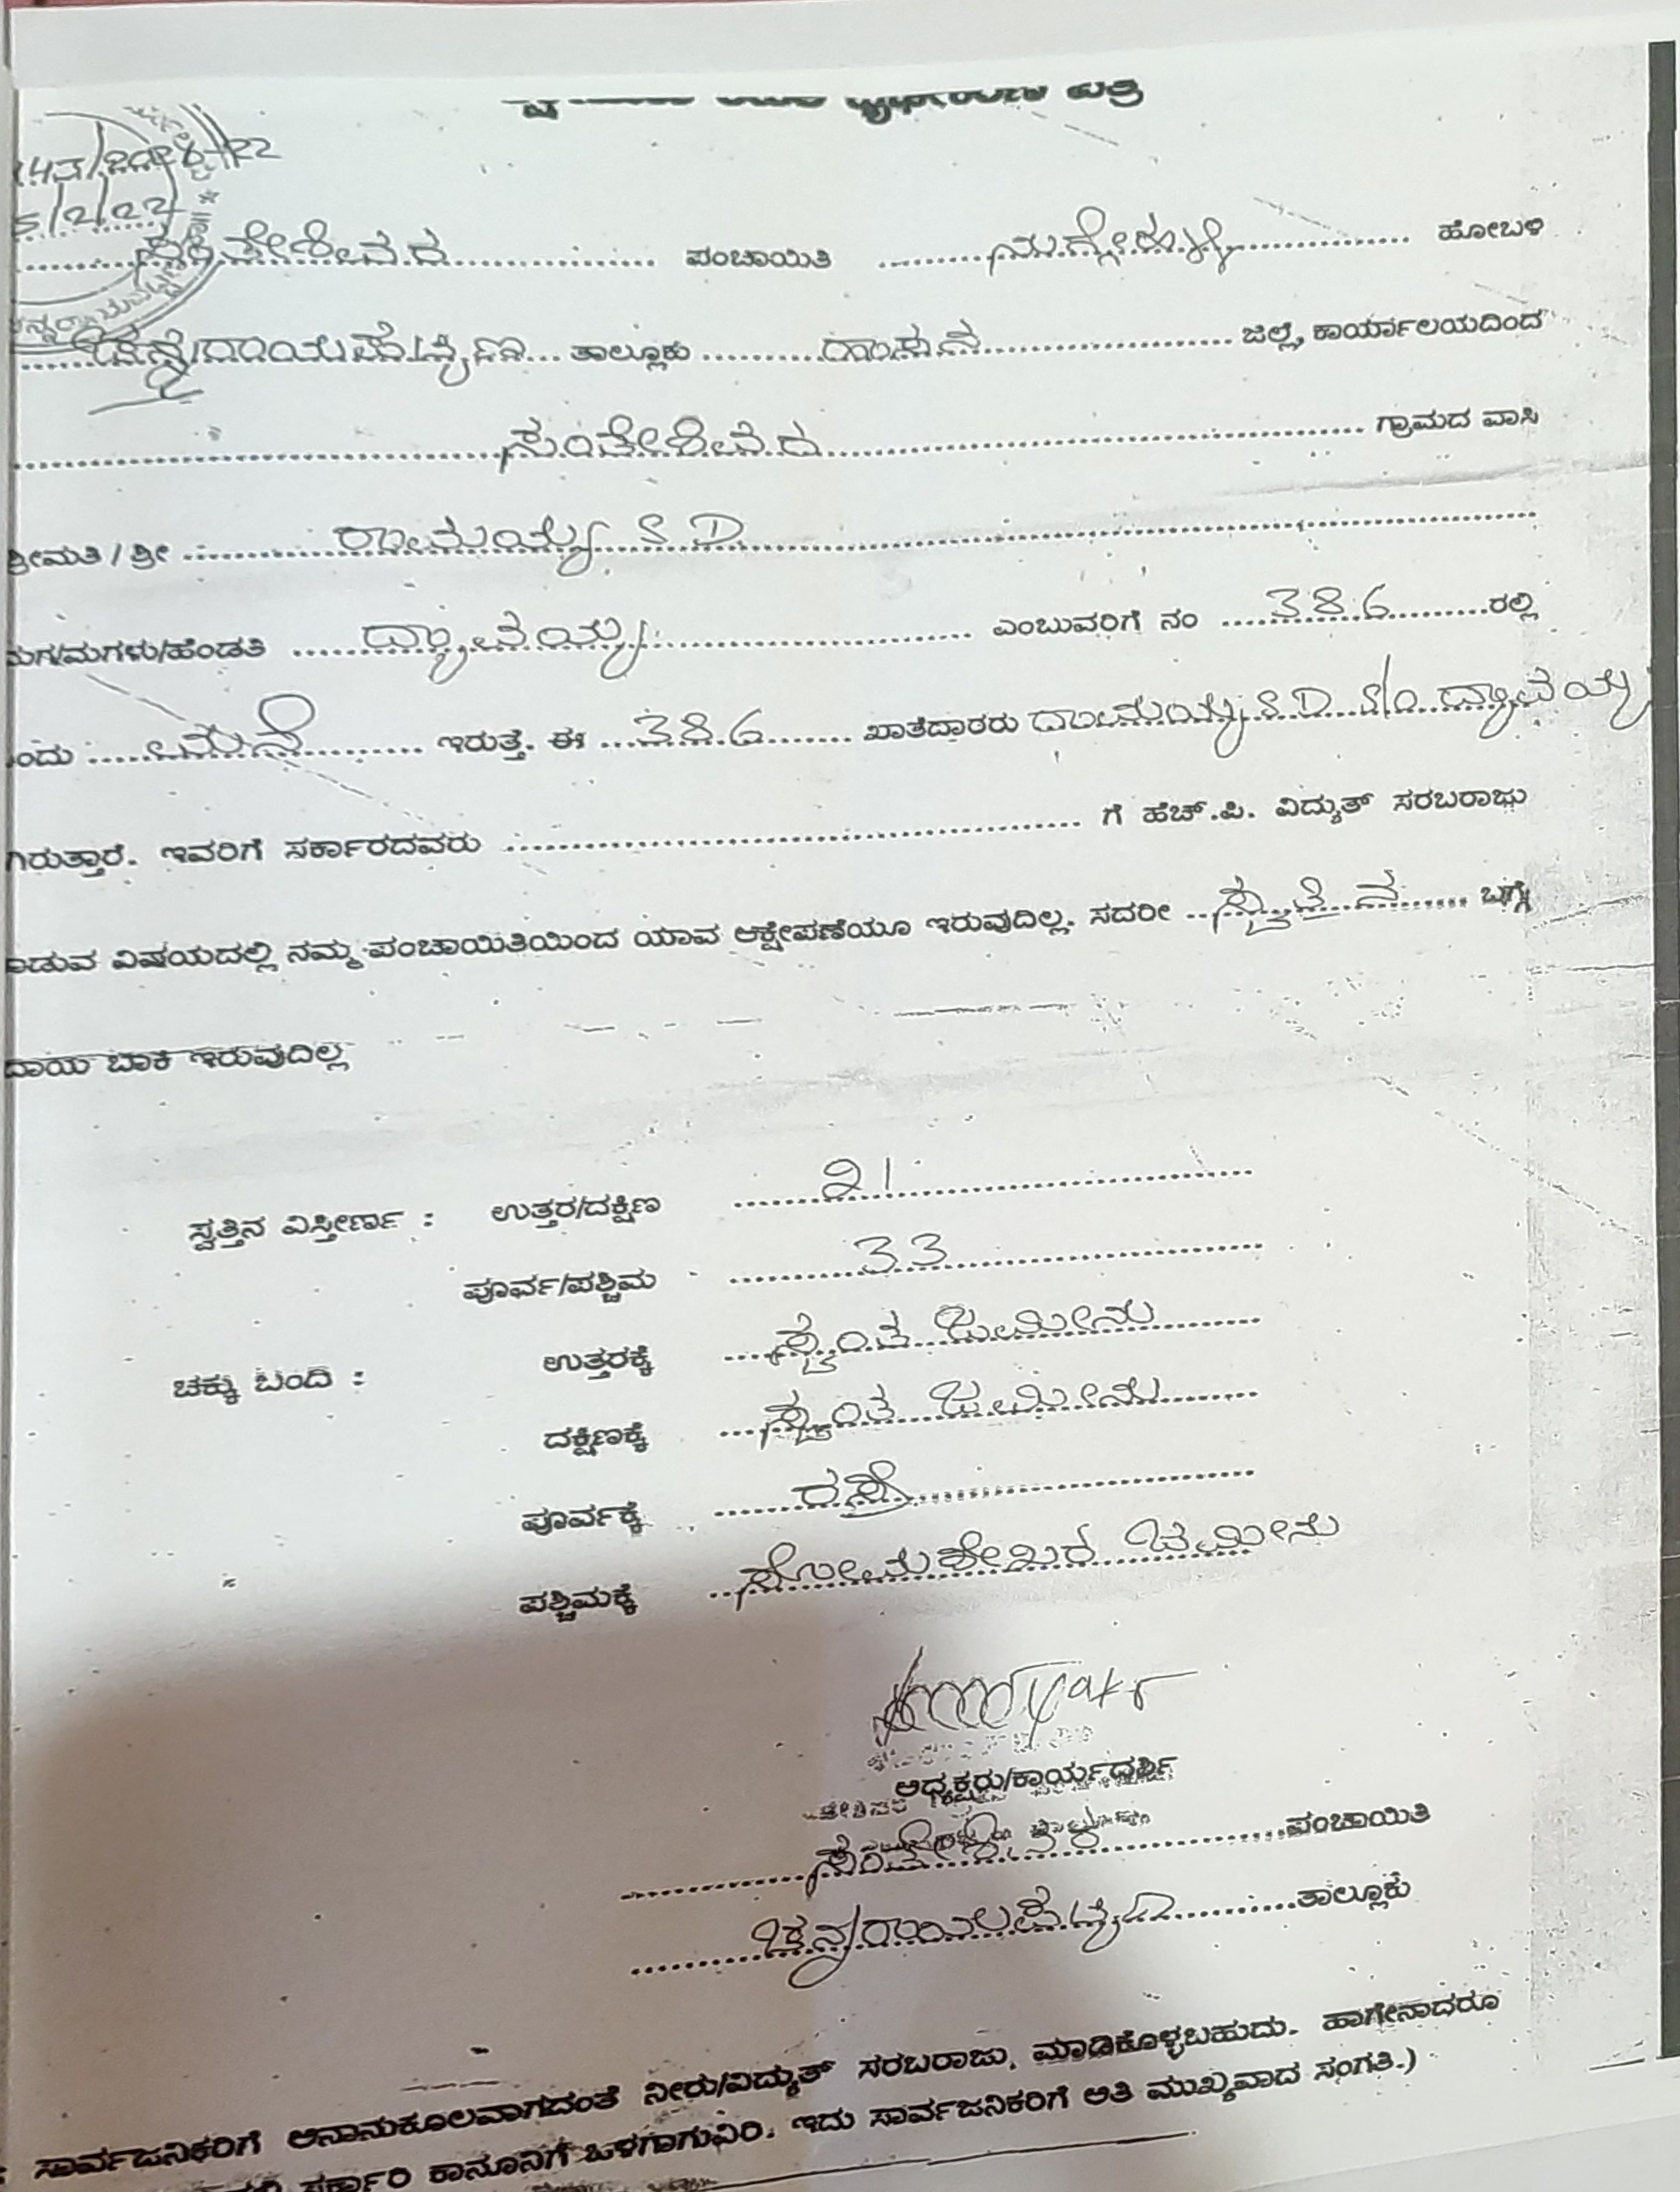 ಪತ್ರ
5/2/22
ಸಂತೇಶಿವರ ಪಂಚಾಯಿತಿ ನುಗ್ಗೇಹಳ್ಳಿ ಹೋಬಳಿ
ಚನ್ನರಾಯಪಟ್ಟಣ ತಾಲ್ಲೂಕು ಹಾಸನ ಜಿಲ್ಲೆ, ಕಾರ್ಯಾಲಯದಿಂದ
ಸಂತೇಶಿವರ ಗ್ರಾಮದ ವಾಸಿ
ಶ್ರೀಮತಿ / ಶ್ರೀ ರಾಮಯ್ಯ S D
ಮಗ/ಮಗಳು/ಹೆಂಡತಿ ದ್ಯಾವಯ್ಯ ಎಂಬುವರಿಗೆ ನಂ 386 ರಲ್ಲಿ
ಂದು ಮನೆ ಇರುತ್ತೆ. ಈ 386 ಖಾತೆದಾರರು ರಾಮಯ್ಯ S D S/O ದ್ಯಾವಯ್ಯ
ಗಿರುತ್ತಾರೆ. ಇವರಿಗೆ ಸರ್ಕಾರದವರು ಗೆ ಹೆಚ್.ಪಿ. ವಿದ್ಯುತ್ ಸರಬರಾಜು
ಾಡುವ ವಿಷಯದಲ್ಲಿ ನಮ್ಮ ಪಂಚಾಯಿತಿಯಿಂದ ಯಾವ ಆಕ್ಷೇಪಣೆಯೂ ಇರುವುದಿಲ್ಲ. ಸದರೀ ಸ್ವತ್ತಿನ ಬಗ್ಗೆ
ದಾಯ ಬಾಕಿ ಇರುವುದಿಲ್ಲ
ಸ್ವತ್ತಿನ ವಿಸ್ತೀರ್ಣ : ಉತ್ತರ/ದಕ್ಷಿಣ 21
ಪೂರ್ವ/ಪಶ್ಚಿಮ 33
ಚಕ್ಕು ಬಂದಿ : ಉತ್ತರಕ್ಕೆ ಸ್ವಂತ ಜಮೀನು
ದಕ್ಷಿಣಕ್ಕೆ ಸ್ವಂತ ಜಮೀನು
ಪೂರ್ವಕ್ಕೆ ರಸ್ತೆ
ಪಶ್ಚಿಮಕ್ಕೆ ಸೋಮಶೇಖರ ಜಮೀನು
ಅಧ್ಯಕ್ಷರು/ಕಾರ್ಯದರ್ಶಿ
ಸಂತೇಶಿವರ ಪಂಚಾಯಿತಿ
ಚನ್ನರಾಯಪಟ್ಟಣ ತಾಲ್ಲೂಕು
: ಸಾರ್ವಜನಿಕರಿಗೆ ಅನಾನುಕೂಲವಾಗದಂತೆ ನೀರು/ವಿದ್ಯುತ್ ಸರಬರಾಜು ಮಾಡಿಕೊಳ್ಳಬಹುದು. ಹಾಗೇನಾದರೂ
ಸರ್ಕಾರಿ ಕಾನೂನಿಗೆ ಒಳಗಾಗುವಿರಿ. ಇದು ಸಾರ್ವಜನಿಕರಿಗೆ ಅತಿ ಮುಖ್ಯವಾದ ಸಂಗತಿ.)